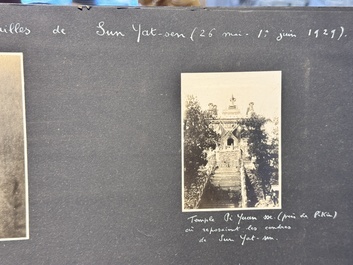 ailles de Sun Yat-sen (26 mai - 1er juin 1929).
Temple Pi Yuan sse. (près de Pékin)
où reposaient les cendres
de Sun Yat-sen.